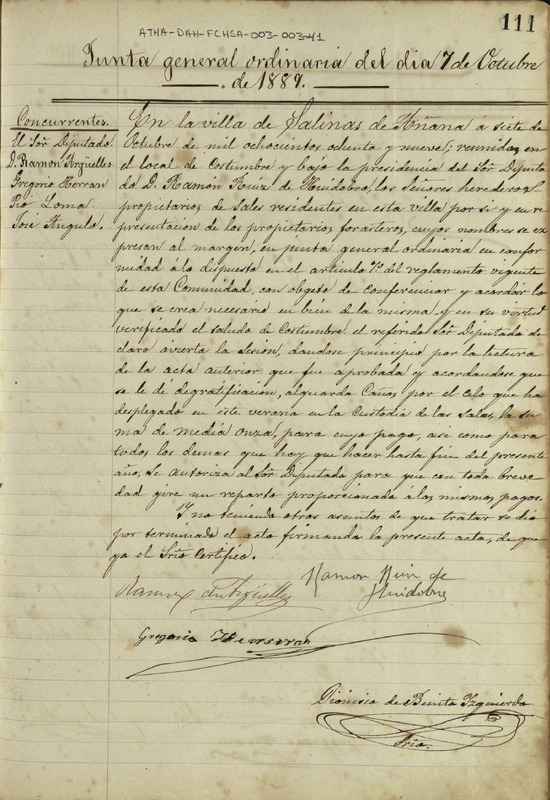 111
ATHA-DAH-FCHSA-003-003-41
Junta general ordinaria del dia 7 de Octubre
de 1889.
Concurrentes.
El Sor Diputado
D. Ramon Argüelles
Gregorio Herran
Pio Loma
José Angulo.
En la villa de Salinas de Añana á siete de
Octubre de mil ochocientos ochenta y nueve; reunidos en
el local de costumbre y bajo la presidencia del Sor Diputa
do D. Ramon Ruiz de Huidobro, los Señores herederos
propietarios de Sales residentes en esta villa por si y en re
presentacion de los propietarios forasteros, cuyos nombres se ex
presan al margen, en junta general ordinaria en confor
midad á lo dispuesto en el articulo 9º del reglamento vigente
de esta Comunidad, con objeto de conferenciar y acordar lo
que se crea necesario en bien de la misma y en su virtud
verificado el saludo de costumbre el referido Sor Diputado de
claró avierta la sesion, dandose principio por la lectura
de la acta anterior que fué aprobada y acordandose que
se le dé de gratificacion, al guarda Caños por el celo que ha
desplegado en este verano en la Custodia de las Salas, la su
ma de media onza, para cuyo pago, asi como para
todos los demas que hay que hacer hasta fin del presente
año, se autoriza al Sor Diputado para que con toda breve
dad gire un reparto proporcionado á los mismos pagos.
Y no teniendo otros asuntos de que tratar se dió
por terminado el acto firmando la presente acta, de que
yo el Srio Certifico.
Ramon Ruiz de
Huidobro
Ramon Argüelles
Gregorio Herran
Dionisio de Benita Izquierdo
Srio.